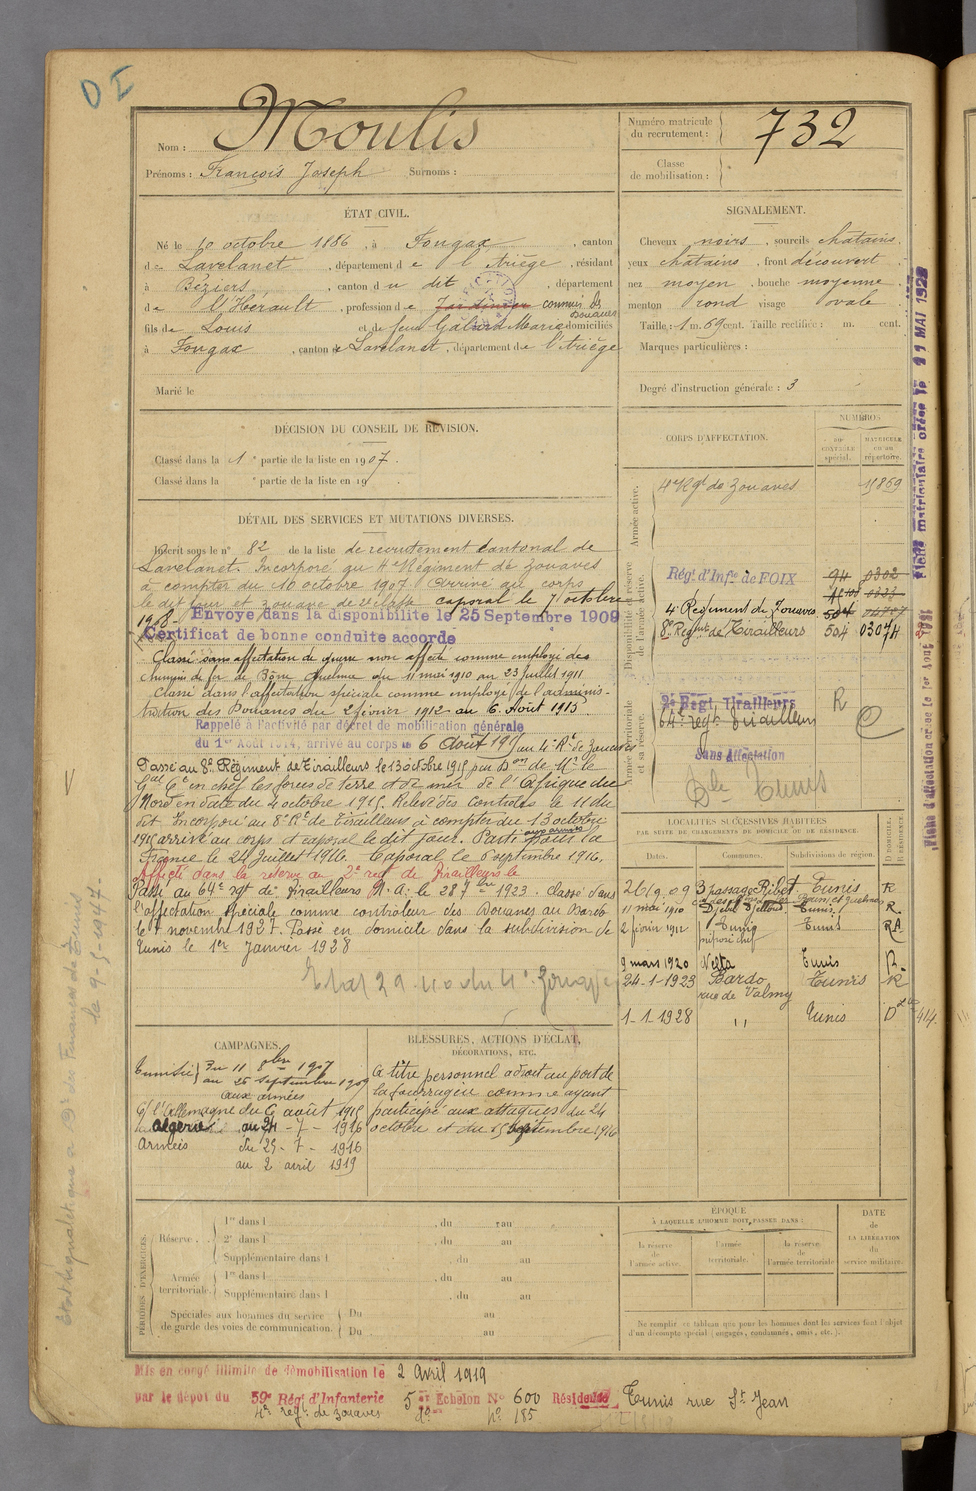 D I
Nom : Moulis
Prénoms : François Joseph Surnoms :
Numéro matricule
du recrutement : 732
Classe
de mobilisation :
ÉTAT CIVIL.
Né le 10 octobre 1886, à Fougax, canton
de Lavelanet, département de l'Ariège, résidant
à Béziers, canton du dit, département
de l'Hérault, profession de Jardinier commis des Douanes
fils de Louis et de feue Galard Marie domiciliés
à Fougax, canton de Lavelanet, département de l'Ariège
Marié le
SIGNALEMENT.
Cheveux noirs, sourcils chatains,
yeux chatains, front découvert
nez moyen, bouche moyenne
menton rond visage ovale
Taille : 1 m. 69 cent. Taille rectifiée : m. cent.
Marques particulières :
Degré d'instruction générale : 3
DÉCISION DU CONSEIL DE RÉVISION.
Classé dans la 1e partie de la liste en 1907.
Classé dans la e partie de la liste en 19
DÉTAIL DES SERVICES ET MUTATIONS DIVERSES.
Inscrit sous le n° 82 de la liste de recrutement cantonal de
Lavelanet. Incorporé au 4e Régiment de zouaves
à compter du 10 octobre 1907 arrivé au corps
le dit jour et zouave de 2e classe caporal le 7 octobre
1908. Envoyé dans la disponibilité le 25 Septembre 1909
Certificat de bonne conduite accordé
Classé sans affectation de guerre non affecté comme employé des
chemins de fer de Bône Guelma du 11 mai 1910 au 23 juillet 1911
Classé dans l'affectation spéciale comme employé de l'adminis-
tration des Douanes du 2 février 1912 au 6 Août 1915
Rappelé à l'activité par décret de mobilisation générale
du 1er Août 1914, arrivé au corps le 6 août 1915 au 4e Rt de Zouaves
Passé au 8e Régiment de Tirailleurs le 13 octobre 1915 par Don de Mr le
Gal Ct en chef les forces de terre et de mer de l'Afrique du
Nord en date du 4 octobre 1915. Relevé des controles le 11 du
dit Incorporé au 8e Rt de Tirailleurs à compter du 13 octobre
1915 arrivé au corps et caporal le dit jour. Parti aux armées pour la
France le 24 Juillet 1916. Caporal le 6 septembre 1916.
Affecté dans la réserve au 2e reg de Tirailleurs le
Passé au 64e rgt de Tirailleurs N. A. le 28 7bre 1923. Classé dans
l'affectation spéciale comme controleur des Douanes au Bardo
le 1 novembre 1927. Passé en domicile dans la subdivision de
Tunis le 1er Janvier 1928
CORPS D'AFFECTATION.
NUMÉROS
au CONTRÔLE spécial.
MATRICULE ou au répertoire.
Armée active.
4e Rgt de Zouaves 15869
Disponibilité et réserve de l'armée active.
Régt d'Infie de FOIX 94 0302
4e Régiment de Zouaves 504
8e Regmt de Tirailleurs 504 03074
Armée territoriale et sa réserve.
2e Régt Tirailleurs R
64e regt Tirailleurs C
Sans Affectation
Dle Tunis
Fiche matriculaire créée le 11 MAI 1922
LOCALITÉS SUCCESSIVES HABITÉES
PAR SUITE DE CHANGEMENTS DE DOMICILE OU DE RÉSIDENCE
Dates. Communes. Subdivisions de région. D DOMICILE. R RÉSIDENCE.
26/9 09 3 passage Ribet Tunis R
11 mai 1910 Djebel Djelloud Tunis R
2 février 1912 Tunis préposé chef Tunis RA
9 mars 1920 Nefta Tunis R
24-1-1923 Bardo rue de Valmy Tunis R
1-1-1928 " Tunis D 414
CAMPAGNES.
Tunisie Du 11 8bre 1907
au 25 septembre 1909
aux armées
C/ l'Allemagne du 6 août 1915
algérie au 24-7-1916
Armées du 25-7-1916
au 2 avril 1919
BLESSURES, ACTIONS D'ÉCLAT,
DÉCORATIONS, ETC.
A titre personnel a droit au port de
la fourragère comme ayant
participé aux attaques du 24
octobre et du 15 septembre 1916
PÉRIODES D'EXERCICES.
Réserve . . 1re dans l , du au
2e dans l , du au
Supplémentaire dans l , du au
Armée territoriale. 1re dans l , du au
Supplémentaire dans l , du au
Spéciales aux hommes du service
de garde des voies de communication. Du au
Du au
ÉPOQUE
À LAQUELLE L'HOMME DOIT PASSER DANS :
la réserve de l'armée active.
l'armée territoriale.
la réserve de l'armée territoriale
DATE
de
LA LIBÉRATION
du
service militaire.
Ne remplir ce tableau que pour les hommes dont les services font l'objet
d'un décompte spécial (engagés, condamnés, omis, etc.).
Mis en congé illimité de démobilisation le 2 Avril 1919
par le dépôt du 59e Régt d'Infanterie 5e Echelon N° 600 Résidence Tunis rue St Jean
4e regt de zouaves do n° 185